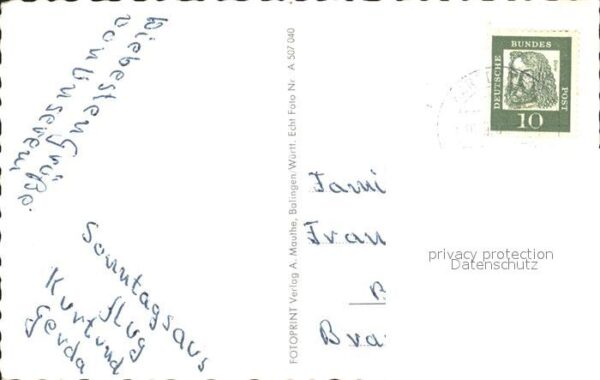 Liebesten Grüße
von Unserem
Sonntagsaus
flug
Kurt und
Gerda
FOTOPRINT Verlag A. Mauthe, Balingen/Württ. Echt Foto Nr. A 507 040
DEUTSCHE BUNDES POST
10
Fami
Fran
Bra
privacy protection
Datenschutz